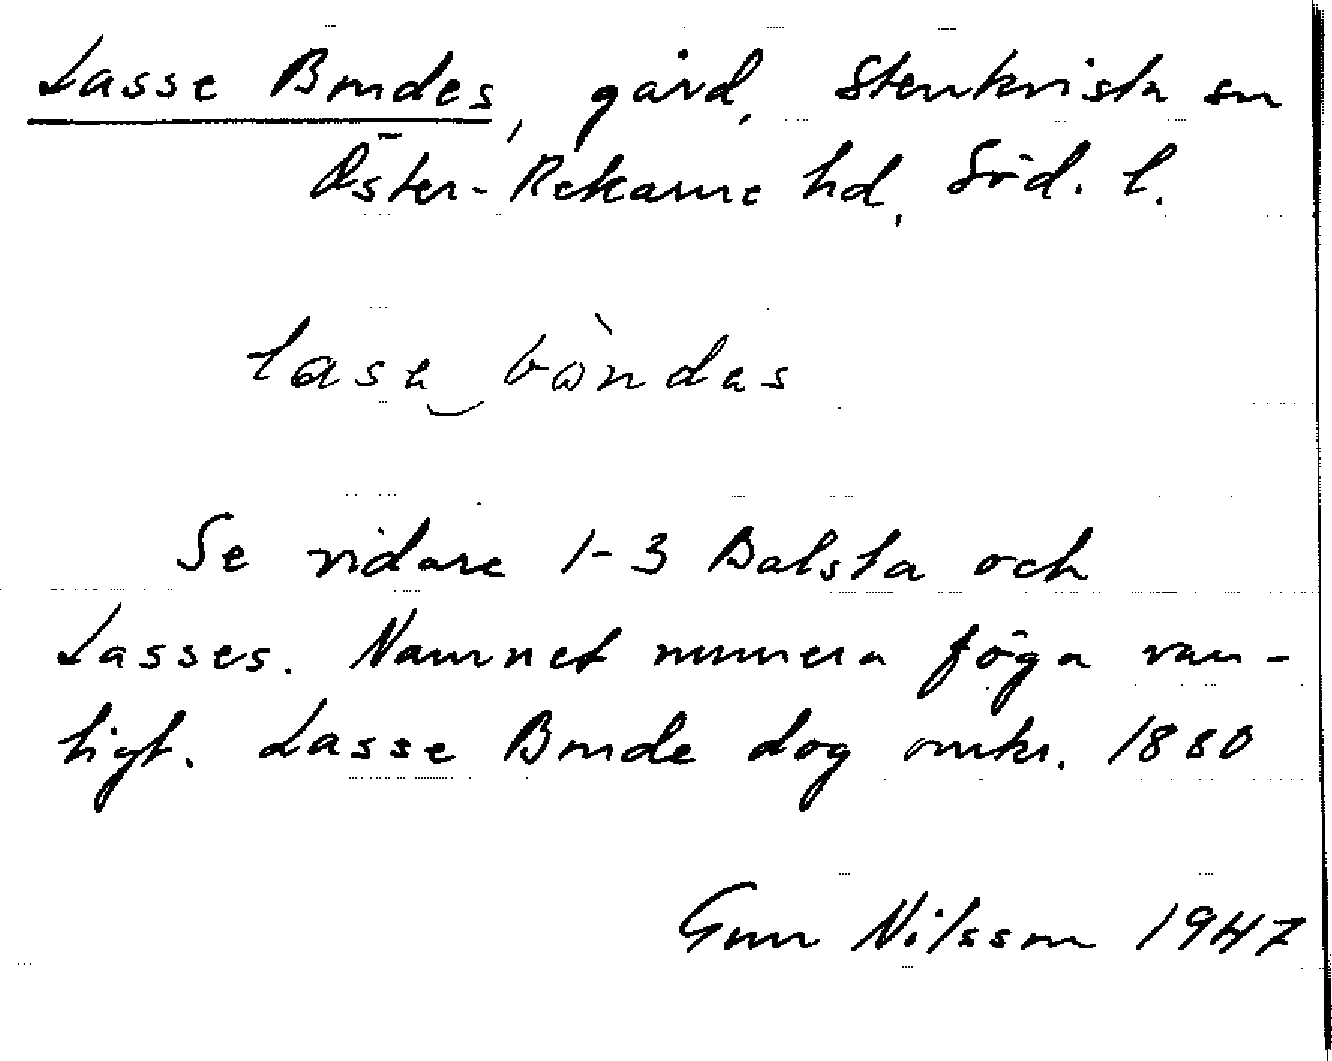 Lasse Bondes, gård, Stenkvista sn
Öster-Rekarne hd, Söd. l.
lasa bòndas
Se vidare 1-3 Balsta och
Lasses. Namnet numera föga van-
ligt. Lasse Bonde dog omkr. 1880
Gun Nilsson 1947